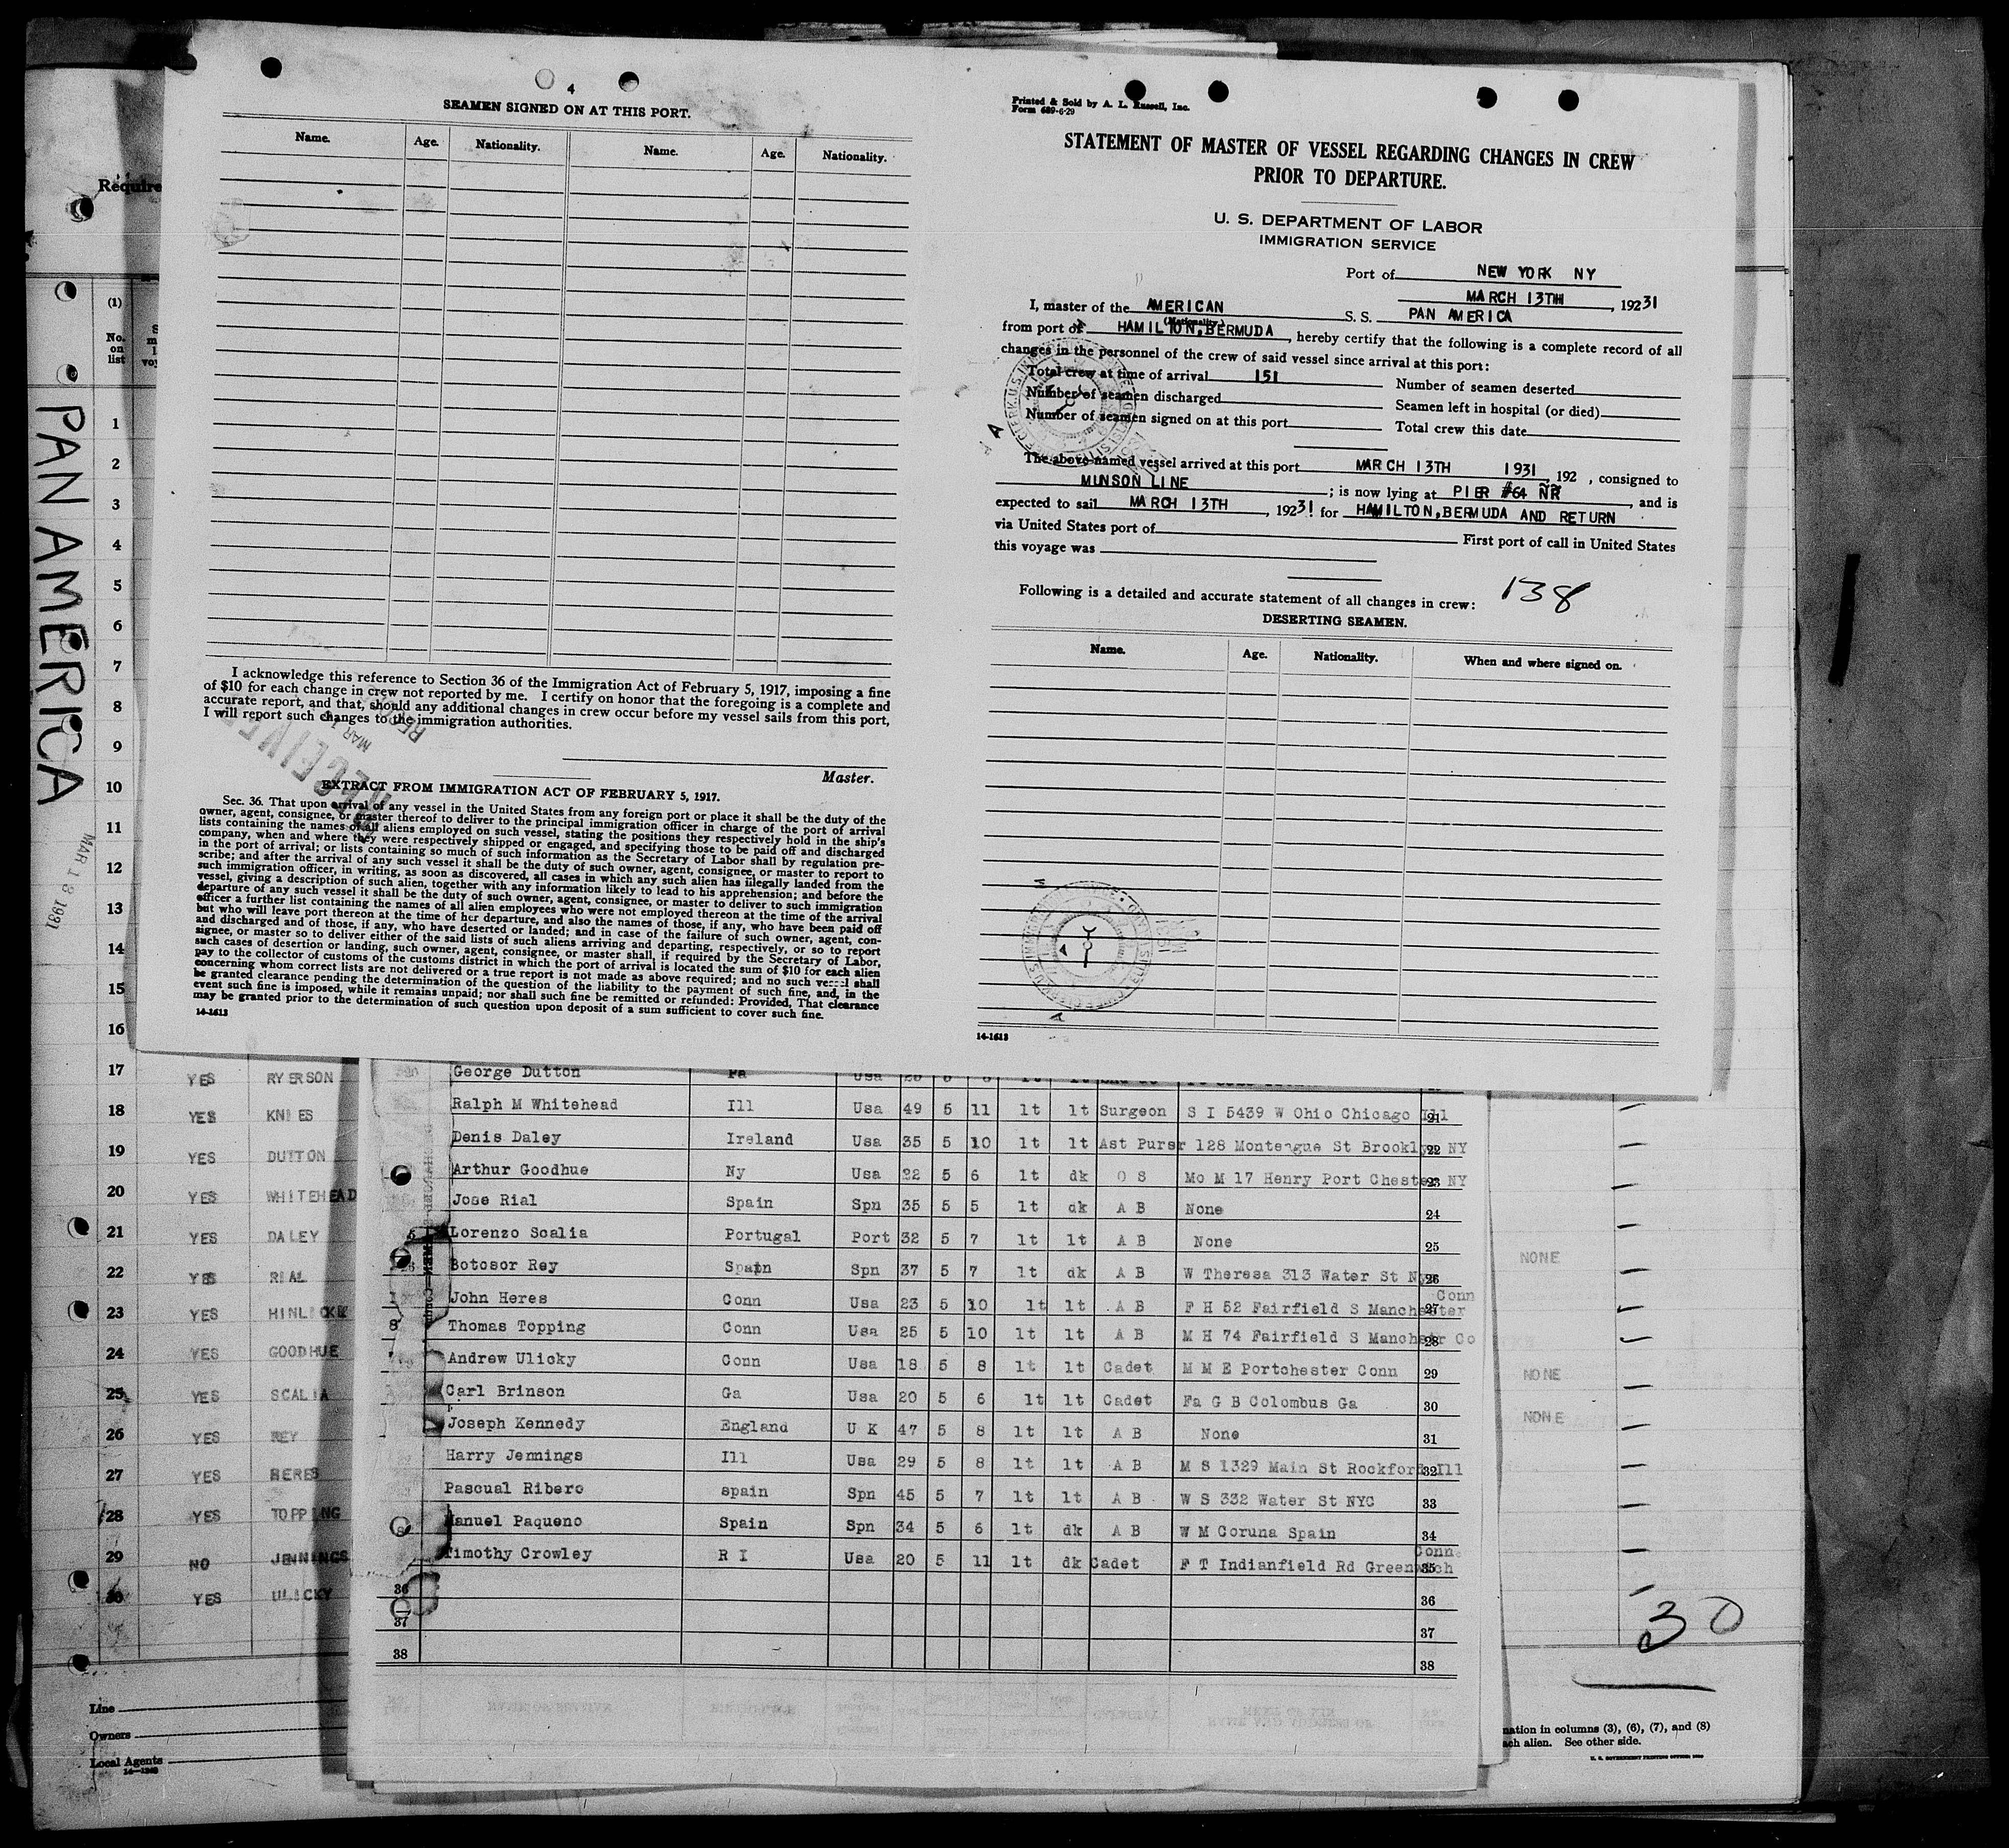 4
SEAMEN SIGNED ON AT THIS PORT.
Name. Age. Nationality. Name. Age. Nationality.
I acknowledge this reference to Section 36 of the Immigration Act of February 5, 1917, imposing a fine
of $10 for each change in crew not reported by me. I certify on honor that the foregoing is a complete and
accurate report, and that, should any additional changes in crew occur before my vessel sails from this port,
I will report such changes to the immigration authorities.
Master.
EXTRACT FROM IMMIGRATION ACT OF FEBRUARY 5, 1917.
Sec. 36. That upon arrival of any vessel in the United States from any foreign port or place it shall be the duty of the
owner, agent, consignee, or master thereof to deliver to the principal immigration officer in charge of the port of arrival
lists containing the names of all aliens employed on such vessel, stating the positions they respectively hold in the ship's
company, when and where they were respectively shipped or engaged, and specifying those to be paid off and discharged
in the port of arrival; or lists containing so much of such information as the Secretary of Labor shall by regulation pre-
scribe; and after the arrival of any such vessel it shall be the duty of such owner, agent, consignee, or master to report to
such immigration officer, in writing, as soon as discovered, all cases in which any such alien has illegally landed from the
vessel, giving a description of such alien, together with any information likely to lead to his apprehension; and before the
departure of any such vessel it shall be the duty of such owner, agent, consignee, or master to deliver to such immigration
officer a further list containing the names of all alien employees who were not employed thereon at the time of the arrival
but who will leave port thereon at the time of her departure, and also the names of those, if any, who have been paid off
and discharged and of those, if any, who have deserted or landed; and in case of the failure of such owner, agent, con-
signee, or master so to deliver either of the said lists of such aliens arriving and departing, respectively, or so to report
such cases of desertion or landing, such owner, agent, consignee, or master shall, if required by the Secretary of Labor,
pay to the collector of customs of the customs district in which the port of arrival is located the sum of $10 for each alien
concerning whom correct lists are not delivered or a true report is not made as above required; and no such vessel shall
be granted clearance pending the determination of the question of the liability to the payment of such fine, and, in the
event such fine is imposed, while it remains unpaid; nor shall such fine be remitted or refunded: Provided, That clearance
may be granted prior to the determination of such question upon deposit of a sum sufficient to cover such fine.
14-1613
RECEIVED
MAR
Printed & Sold by A. L. Russell, Inc.
Form 689-6-29
STATEMENT OF MASTER OF VESSEL REGARDING CHANGES IN CREW
PRIOR TO DEPARTURE.
U. S. DEPARTMENT OF LABOR
IMMIGRATION SERVICE
Port of NEW YORK NY
MARCH 13TH, 19231
I, master of the AMERICAN S.S. PAN AMERICA
(Nationality)
from port of HAMILTON, BERMUDA, hereby certify that the following is a complete record of all
changes in the personnel of the crew of said vessel since arrival at this port:
Total crew at time of arrival 151 Number of seamen deserted
Number of seamen discharged Seamen left in hospital (or died)
Number of seamen signed on at this port Total crew this date
The above-named vessel arrived at this port MARCH 13TH 1931, 192 , consigned to
MUNSON LINE ; is now lying at PIER #64 NR, and is
expected to sail MARCH 13TH, 19231 for HAMILTON, BERMUDA AND RETURN
via United States port of First port of call in United States
this voyage was
Following is a detailed and accurate statement of all changes in crew: 138
DESERTING SEAMEN.
Name. Age. Nationality. When and where signed on.
14-1613
PAN AMERICA
MAR 13 1931
Require
(1)
No.
on
list
1
2
3
4
5
6
7
8
9
10
11
12
13
14
15
16
17 YES RYERSON
18 YES KNIES
19 YES DUTTON
20 YES WHITEHEAD
21 YES DALEY
22 YES RIAL
23 YES
24 YES GOODHUE
25 YES SCALIA
26 YES REY
27 YES BERES
28 YES TOPPING
29 NO JENNINGS
30 YES ULICKY
Line
Owners
Local Agents
George Dutton Pa Usa
Ralph M Whitehead Ill Usa 49 5 11 lt lt Surgeon S I 5439 W Ohio Chicago Ill 21
Denis Daley Ireland Usa 35 5 10 lt lt Ast Pursr 128 Monteague St Brooklyn NY 22
Arthur Goodhue Ny Usa 22 5 6 lt dk O S Mo M 17 Henry Port Chester NY 23
Jose Rial Spain Spn 35 5 5 lt dk A B None 24
Lorenzo Scalia Portugal Port 32 5 7 lt lt A B None 25
Botosor Rey Spain Spn 37 5 7 lt dk A B W Theresa 313 Water St Nyc 26
John Heres Conn Usa 23 5 10 lt lt A B F H 52 Fairfield S Manchester Conn 27
Thomas Topping Conn Usa 25 5 10 lt lt A B M H 74 Fairfield S Manchestr Co 28
Andrew Ulicky Conn Usa 18 5 8 lt lt Cadet M M E Portchester Conn 29
Carl Brinson Ga Usa 20 5 6 lt lt Cadet Fa G B Colombus Ga 30
Joseph Kennedy England U K 47 5 8 lt lt A B None 31
Harry Jennings Ill Usa 29 5 8 lt lt A B M S 1329 Main St Rockford Ill 32
Pascual Ribero spain Spn 45 5 7 lt lt A B W S 332 Water St NYC 33
Manuel Paqueno Spain Spn 34 5 6 lt dk A B W M Coruna Spain 34
Timothy Crowley R I Usa 20 5 11 lt dk Cadet F T Indianfield Rd Greenwich Conn 35
36 36
37 37
38 38
NONE
NONE
NONE
30
mation in columns (3), (6), (7), and (8)
ach alien. See other side.
U. S. GOVERNMENT PRINTING OFFICE